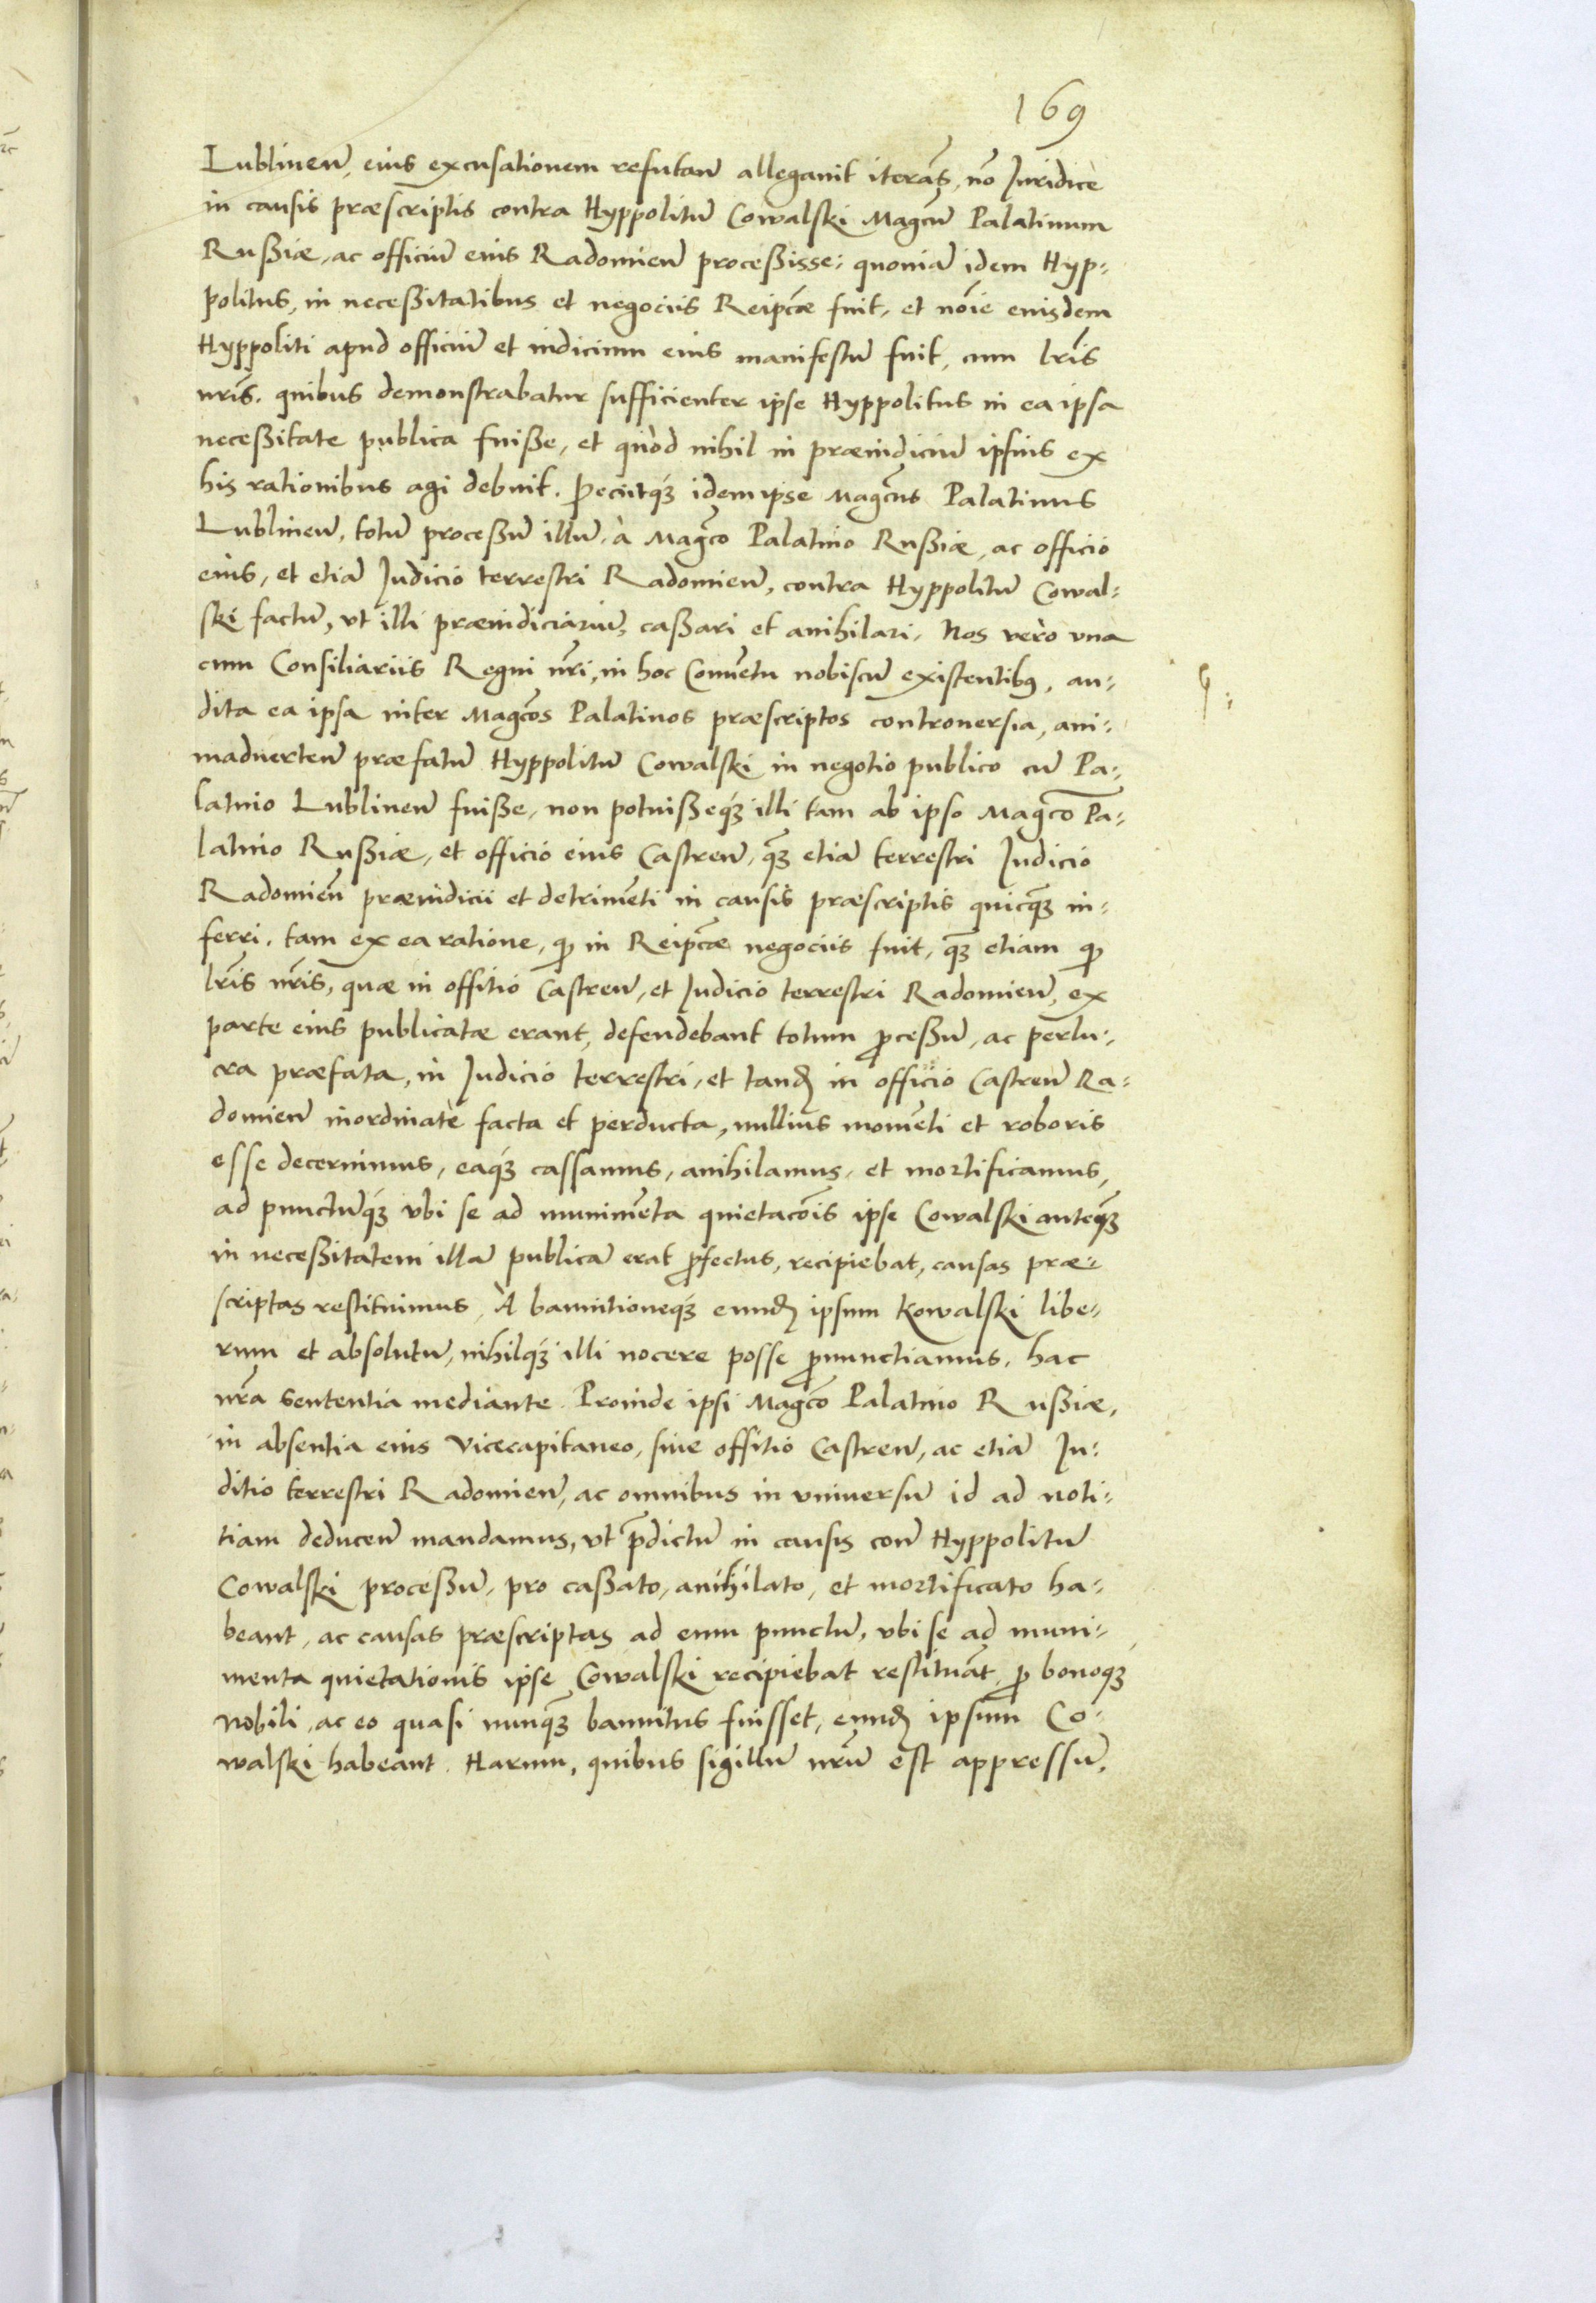 169
Lublinen̄, eius excusationem refutan̄ allegauit iterās, nō Juridice
in causis præscriptis contra Hyppolitū Cowalski Magcū Palatinum
Rußiæ, ac officiū eius Radomien̄ proceßisse: quoniā idem Hyp⸗
politus, in neceßitatibus et negociis Reipcæ fuit, et noīe eiusdem
Hyppoliti apud officiū et iudicium eius manifestū fuit, cum lrīs
nrīs, quibus demonstrabatur sufficienter ipse Hyppolitus in ea ipsa
neceßitate publica fuiße, et quòd nihil in præiudiciū ipsius ex
his rationibus agi debuit. Peciitq́ꝫ idem ipse Magcūs Palatinus
Lublinen̄, totū proceßū illū, à Magcō Palatino Rußiæ, ac officio
eius, et etiā Judicio terrestri Radomien̄, contra Hyppolitū Cowal⸗
ski factū, vt illi præiudiciariū, caßari et anihilari. Nos verò vna
cum Consiliariis Regni nrī, in hoc Conuētu nobiscū existentibꝰ, au⸗
dita ea ipsa inter Magcōs Palatinos præscriptos controuersia, ani⸗
maduerten̄ præfatū Hyppolitū Cowalski in negotio publico cū Pa⸗
latino Lublinen̄ fuiße, non potuißeq́ꝫ illi tam ab ipso Magcō Pa⸗
latino Rußiæ, et officio eius Castren̄, qꝫ̄ etiā terrestri Judicio
Radomien̄ præiudicii et detrimēti in causis præscriptis quicqꝫ̄ in⸗
ferri, tam ex ea ratione, ꝙ in Reipcæ negociis fuit, qꝫ̄ etiam ꝙ
lrīs nrīs, quæ in offitio Castren̄, et Judicio terrestri Radomien̄, ex
parte eius publicatæ erant, defendebant totum ꝓceßū, ac perlu⸗
cra præfata, in Judicio terrestri, et tandꝫ in officio Castren̄ Ra⸗
domien̄ inordinatè facta et perducta, nullius momēti et roboris
esse decernimus, eaq́ꝫ cassamus, anihilamus, et mortificamus,
ad punctūq́ꝫ vbi se ad munimēta quietacōis ipse Cowalski anteqꝫ̄
in neceßitatem illā publicā erat ꝓfectus, recipiebat, causas præ⸗
scriptas restituimus, À bannitioneq́ꝫ eundꝫ ipsum Kowalski libe⸗
rum et absolutū, nihilq́ꝫ illi nocere posse ꝓnunctiamus, hac
nrā sententia mediante. Proinde ipsi Magcō Palatino Rußiæ,
in absentia eius Vicecapitaneo, siue offitio Castren̄, ac etiā Ju⸗
ditio terrestri Radomien̄, ac omnibus in vniuersū id ad noti⸗
tiam deducen̄ mandamus, vt p̄dictū in causis con̄ Hyppolitū
Cowalski proceßū, pro caßato, anihilato, et mortificato ha⸗
beant, ac causas præscriptas ad eum punctū, vbi se ad muni⸗
menta quietationis ipse Cowalski recipiebat restituāt, ꝓ bonoqꝫ
Nobili, ac eo quasi nunqꝫ̄ bannitus fuisset, eundꝫ ipsum Co⸗
walski habeant. Harum, quibus sigillū nrū est appressū,